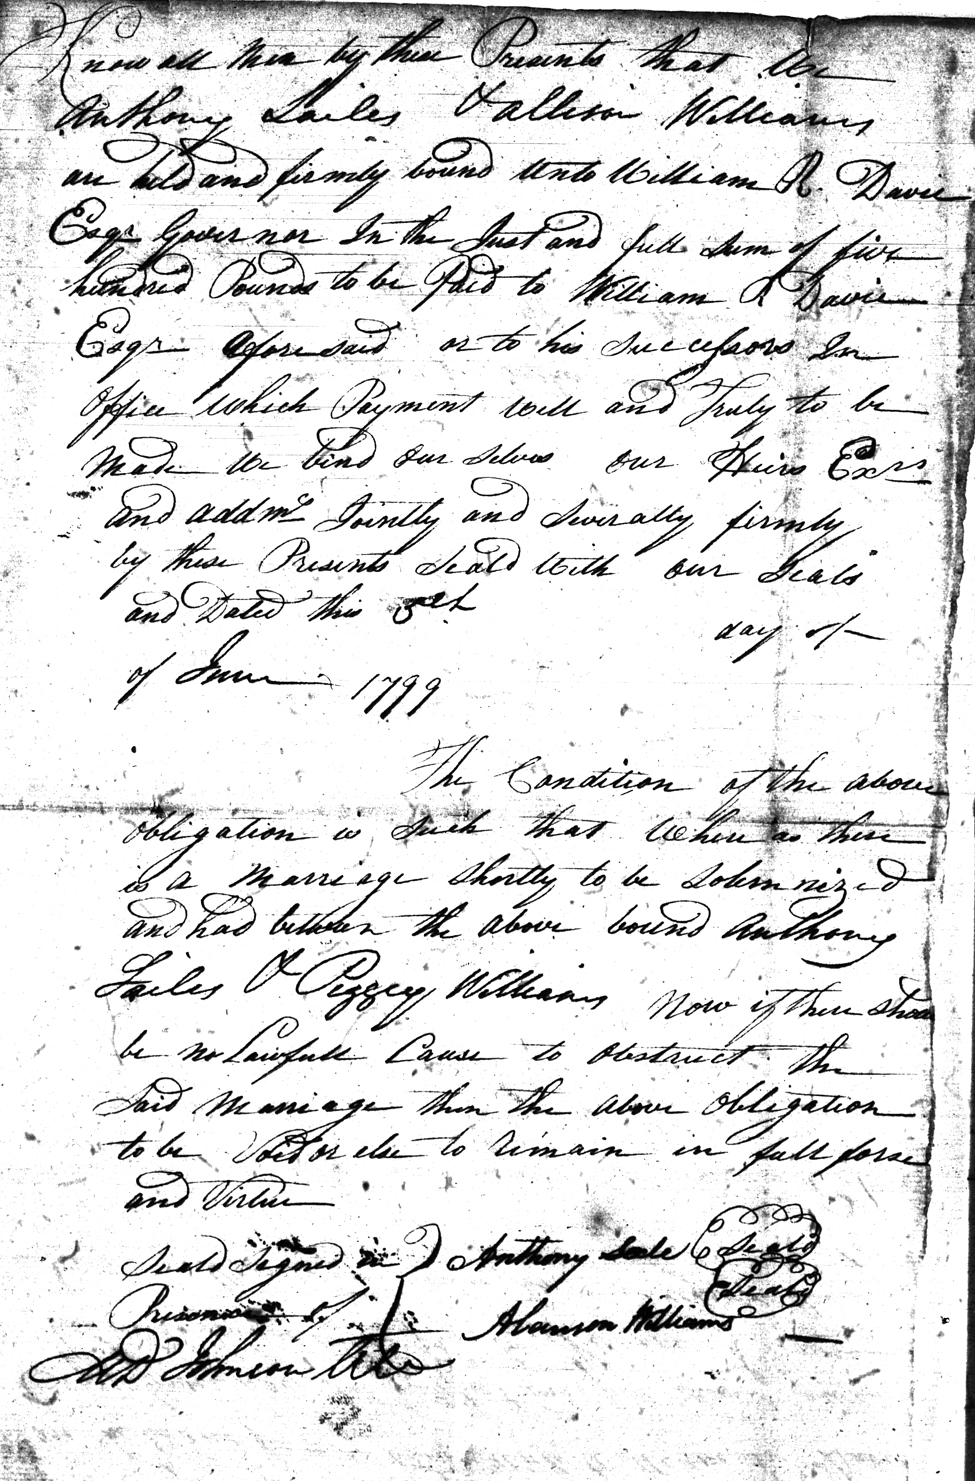 Know all Men by these Presents that We
Anthony Sailes & allison Williams
are held and firmly bound Unto William R. Davie
Esqr Governor In the Just and full sum of five
hundred Pounds to be Paid to William R Davie
Esqr aforesaid or to his Successors In
Office Which Payment Well and Truly to be
Made We bind Our Selves Our Heirs Exrs
and addmrs Jointly and Severally firmly
by these Presents Seald With our Seals
and Dated this 5th day of
of June 1799
The Condition of the above
Obligation is Such that Where as there
is a Marriage Shortly to be Solemnized
and had between the above bound Anthony
Sailes & Peggey Williams Now if there Shou
be no Lawfull Cause to Obstruct the
Said Marriage then the above Obligation
to be Void or else to Remain in full forse
and Virtue
Seald Signed in Anthony Sale Seald
Presence of Seald
Alanson Williams
Johnson